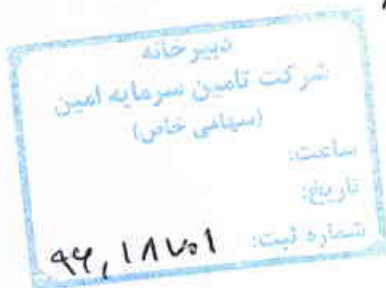 دبیرخانه
شرکت تامین سرمایه امین
(سهامی خاص)
ساعت:
تاریخ:
شماره ثبت: ۹۶,۱۸۷۰۱